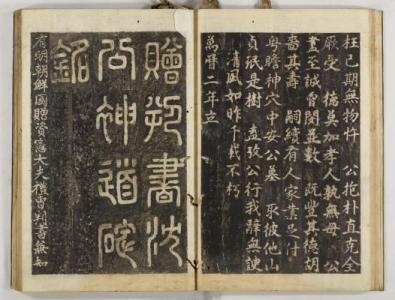 枉己期無物忤 公抱朴直克全
厥受 德莫加孝人孰無母 公
盡至誠曾閔並數 旣豊其德胡
嗇其壽 嗣續有人家業是付
粤瞻神穴中安公墓 采彼他山
貞珉是樹 盍攷公行我辭無諛
清風如昨千載不朽
萬曆二年立
贈判書沈
公神道碑
銘
有明朝鮮國贈資憲大夫禮曹判書兼知